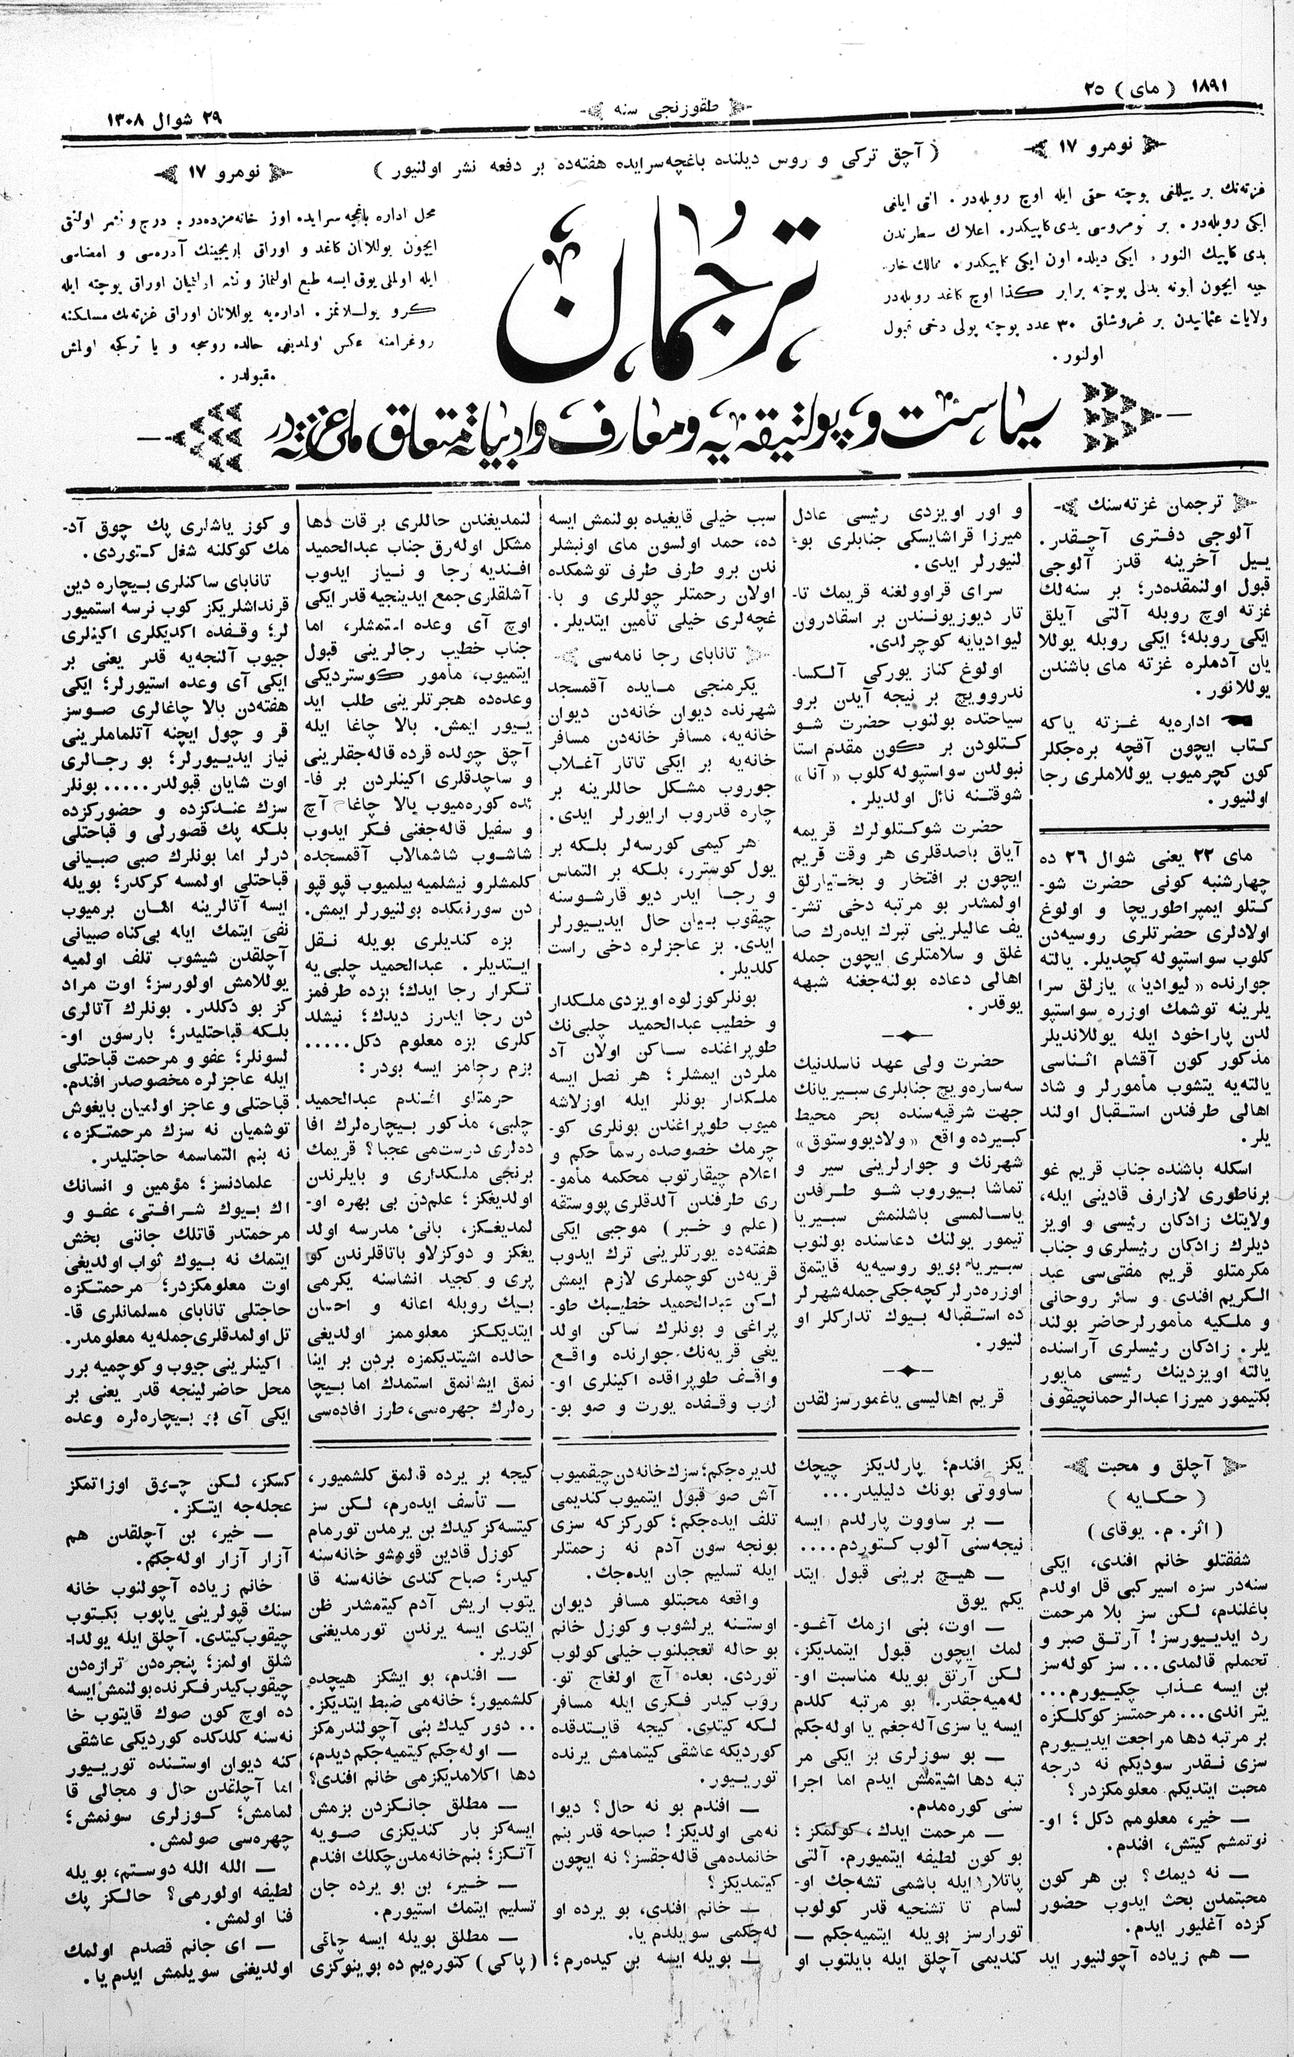 ١٨٩١ ( مای ) ٢٥
طقوزنجی سنه
٢٩ شوال ١٣٠٨
نومرو ١٧
( آچق ترکی و روس دیلنده باغچه‌سرایده هفته‌ده بر دفعه نشر اولنیور )
نومرو ١٧
غزته‌نك بر ییللغی پوچته حقی ایله اوچ روبله‌در. التی ایلغی
ایکی روبله‌در. بر نومروسی یدی کاپیکدر. اعلان سطرندن
یدی کاپیك النور، ایکی دیلده اون ایکی کاپیکدر. ممالك خار-
جیه ایچون ابونه بدلی پوچته برابر کذا اوچ کاغد روبله‌در
ولایات عثمانیدن بر غروشلق ٣٠ عدد پوچته پولی دخی قبول
اولنور.
ترجمان
محل اداره باغچه سرایده اوز خانه‌مزده‌در. درج و نشر اولنق
ایچون یوللانان کاغد و اوراق ایریجینك آدره‌سی و امضاسی
ایله اولملی یوق ایسه طبع اولنماز و نشر اولنمیان اوراق پوچته ایله
کرو یوللانمز. اداره‌یه یوللانان اوراق غزته‌نك مسلکنه
روغرامنه عکس اولمدیغی حالده روسجه و یا ترکجه اولمش
مقبولدر.
سیاست و پولتیقه‌یه و معارف و ادبیاته متعلق ملی غزته‌در
ترجمان غزته‌سنك
آلوجی دفتری آچقدر.
ییل آخرینه قدر آلوجی
قبول اولنمقده‌در؛ بر سنه‌لك
غزته اوچ روبله آلتی آیلق
ایکی روبله؛ ایکی روبله یوللا
یان آدملره غزته مای باشندن
یوللانور.
اداره‌یه غزته یاکه
کتاب ایچون آقچه بره‌جکلر
کون کچرمیوب یوللاملری رجا
اولنیور.
مای ٢٢ یعنی شوال ٢٦ ده
چهارشنبه کونی حضرت شو-
کتلو ایمپراطوریچا و اولوغ
اولادلری حضرتلری روسیه‌دن
کلوب سواستپوله کچدیلر. یالته
جوارنده «لیوادیا» یازلق سرا
یلرینه توشمك اوزره سواستپو
لدن پاراخود ایله یوللاندیلر
مذکور کون آقشام اثناسی
یالته‌یه یتشوب مأمورلر و شاد
اهالی طرفندن استقبال اولند
یلر.
اسکله باشنده جناب قریم غو
برناطوری لازارف قادینی ایله،
ولایتك زادکان رئیسی و اویز
دیلرك زادکان رئیسلری و جناب
مکرمتلو قریم مفتی‌سی عبد
الکریم افندی و سائر روحانی
و ملکیه مأمورلر حاضر بولند
یلر. زادکان رئیسلری آراسنده
یالته اویزدینك رئیسی مایور
بکتیمور میرزا عبدالرحمانچیقوف
و اور اویزدی رئیسی عادل
میرزا قراشایسکی جنابلری بو-
لنیورلر ایدی.
سرای قراوولغنه قریمك تا-
تار دیویزیونندن بر اسقادرون
لیوادیایه کوچرلدی.
اولوغ کناز یورکی آلکسا-
ندروویچ بر نیچه آیدن برو
سیاحتده بولنوب حضرت شو
کتلودن بر کون مقدم استا
نبولدن سواستپوله کلوب «آنا»
شوقتنه نائل اولدیلر.
حضرت شوکتلولرك قریمه
آیاق باصدقلری هر وقت قریم
ایچون بر افتخار و بختیارلق
اولمشدر بو مرتبه دخی تشر-
یف عالیلرینی تبرك ایده‌رك صا
غلق و سلامتلری ایچون جمله
اهالی دعاده بولنه‌جغنه شبهه
یوقدر.
حضرت ولی عهد ناسلدنیك
سه‌ساره‌ویچ جنابلری سیبریانك
جهت شرقیه‌سنده بحر محیط
کبیرده واقع «ولادیووستوق»
شهرنك و جوارلرینی سیر و
تماشا بیوروب شو طرفدن
یاسالمسی باشلنمش سیبریا
تیمور یولنك دعاسنده بولنوب
سیبریاه بویو روسیه‌یه قایتمق
اوزره‌درلر کچه‌جکی جمله شهرلر
ده استقباله بیوك تدارکلر او
لنیور.
قریم اهالیسی یاغمورسزلقدن
سبب خیلی قایغیده بولنمش ایسه
ده، حمد اولسون مای اونبشلر
ندن برو طرف طرف توشمکده
اولان رحمتلر چوللری و با-
غچه‌لری خیلی تأمین ایتدیلر.
تانابای رجا نامه‌سی
یکرمنجی مایده آقمسجد
شهرنده دیوان خانه‌دن دیوان
خانه‌یه، مسافر خانه‌دن مسافر
خانه‌یه بر ایکی تاتار آغلاب
جوروب مشکل حاللرینه بر
چاره قدروب ارایورلر ایدی.
هر کیمی کورسه‌لر بلکه بر
یول کوسترر، بلکه بر التماس
و رجا ایدر دیو قارشوسنه
چیقوب بیان حال ایدیورلر
ایدی. بز عاجزلره دخی راست
کلدیلر.
بونلر کوزلوه اویزدی ملکدار
و خطیب عبدالحمید چلبی‌نك
طوپراغنده ساکن اولان آد
ملردن ایمشلر؛ هر نصل ایسه
ملکدار بونلر ایله اوزلاشه
میوب طوپراغندن بونلری کو-
چرمك خصوصده رسماً حکم و
اعلام چیقارتوب محکمه مأمو-
ری طرفندن آلدقلری پووستقه
(علم و خبر) موجبی ایکی
هفته‌ده یورتلرینی ترك ایدوب
قریه‌دن کوچملری لازم ایمش
لکن عبدالحمید خطیبك طو-
پراغی و بونلرك ساکن اولد
یغی قریه‌نك جوارنده واقع
واقف طوپراقده اکینلری او-
لرب وقفده یورت و صو بو-
لنمدیغندن حاللری بر قات دها
مشکل اوله‌رق جناب عبدالحمید
افندیه رجا و نیاز ایدوب
آشلقلری جمع ایدینجیه قدر ایکی
اوچ آی وعده استمشلر، اما
جناب خطیب رجالرینی قبول
ایتمیوب، مأمور کوستردیکی
وعده‌ده هجرتلرینی طلب اید
ییور ایمش. بالا چاغا ایله
آچق چولده قرده قاله‌جقلرینی
و ساچدقلری اکینلردن بر فا-
ئده کوره‌میوب بالا چاغا، آچ
و سفیل قاله‌جغنی فکر ایدوب
شاشوب شاشمالاب آقمسجده
کلمشلر و نیشلمیه بیلمیوب قپو قپو
دن سورنمکده بولنیورلر ایمش.
بزه کندیلری بویله نقل
ایتدیلر. عبدالحمید چلبی یه
تکرار رجا ایدك؛ بزده طرفمز
دن رجا ایدرز دیدك؛ نیشلد
کلری بزه معلوم دکل.....
بزم رجامز ایسه بودر:
حرمتلو افندم عبدالحمید
چلبی، مذکور بیچاره‌لرك افا
ده‌لری درست‌می عجبا؟ قریمك
برنجی ملکداری و بایلرندن
اولدیغکز؛ علم‌دن بی بهره او-
لمدیغکز، بانی مدرسه اولد
یغکز و دوکزلاو باتاقلرندن کو
پری و کچید انشاسنه یکرمی
بیك روبله اعانه و احسان
ایتدیکز معلوممز اولدیغی
حالده اشیتدیکمزه بردن بر اینا
نمق ایشانمق استمدك اما بیچا
ره‌لرك چهره‌سی، طرز افاده‌سی
و کوز یاشلری پك چوق آد-
مك کوکلنه شغل کتوردی.
تانابای ساکنلری بیچاره دین
قرنداشلریکز کوب نرسه استمیور
لر؛ وقفده اکدیکلری اکینلری
جیوب آلنجه‌یه قدر یعنی بر
ایکی آی وعده استیورلر؛ ایکی
هفته‌دن بالا چاغالری صوسز
قر و چول ایچنه آتلماملرینی
نیاز ایدیورلر؛ بو رجالری
اوت شایان قبولدر..... بونلر
سزك عندکزده و حضورکزده
بلکه پك قصورلی و قباحتلی
درلر اما بونلرك صبی صبیانی
قباحتلی اولمسه کرکدر؛ بویله
ایسه آتالرینه امان برمیوب
نفی ایتمك ایله بی‌کناه صبیانی
آچلقدن شیشوب تلف اولمیه
یوللامش اولورسز؛ اوت مراد
کز بو دکلدر. بونلرك آتالری
بلکه قباحتلیدر؛ بارسون او-
لسونلر؛ عفو و مرحمت قباحتلی
ایله عاجزلره مخصوصدر افندم.
قباحتلی و عاجز اولمیان بایغوش
توشمیان نه سزك مرحمتکزه،
نه بنم التماسمه حاجتلیدر.
علمادنسز؛ مؤمین و انسانك
اك بیوك شرافتی، عفو و
مرحمتدر قاتلك جاننی بخش
ایتمك نه بیوك ثواب اولدیغی
اوت معلومکزدر؛ مرحمتکزه
حاجتلی تانابای مسلمانلری قا-
تل اولمدقلری جمله‌یه معلومدر.
اکینلرینی جیوب و کوچمیه برر
محل حاضرلینجه قدر یعنی بر
ایکی آی بر بیچاره‌لره وعده
آچلق و محبت
( حکایه )
( اثر. م. یوقای )
شفقتلو خانم افندی، ایکی
سنه‌در سزه اسیر کبی قل اولدم
باغلندم، لکن سز بلا مرحمت
رد ایدیورسز! آرتق صبر و
تحملم قالمدی... سز کوله‌سز
بن ایسه عذاب چکیورم...
یتر اندی... مرحمتسز کوکلکزه
بر مرتبه دها مراجعت ایدیورم
سزی نقدر سودیکم نه درجه
محبت ایتدیکم معلومکزدر؟
— خیر، معلومم دکل؛ او-
نوتمشم کیتش، افندم.
— نه دیمك؟ بن هر کون
محبتمدن بحث ایدوب حضور
کزده آغلیور ایدم.
— هم زیاده آچولنیور اید
یکز افندم؛ پارلدیکز چیچك
ساووتی بونك دلیلیدر...
— بر ساووت پارلدم ایسه
نیجه‌سنی آلوب کتوردم....
— هیچ برینی قبول ایتد
یکم یوق
— اوت، بنی ازمك آغو-
لمك ایچون قبول ایتمدیکز،
لکن آرتق بویله مناسبت او-
له‌میه‌جقدر. بو مرتبه کلدم
ایسه یا سزی آله‌جغم یا اوله‌جکم
— بو سوزلری بر ایکی مر
تبه دها اشیتمش ایدم اما اجرا
سنی کوره‌مدم.
— مرحمت ایدك، کولمکز؛
بو کون لطیفه ایتمیورم. آلتی
پاتلار ایله باشمی تشه‌جك او-
لسام تا تشنجیه قدر کولوب
تورارسز بویله ایتمیه‌جکم —
کندیمی آچلق ایله بایلتوب او
لدیره‌جکم؛ سزك خانه‌دن چیقمیوب
آش صو قبول ایتمیوب کندیمی
تلف ایده‌جکم؛ کورکز که سزی
بونجه سون آدم نه زحمتلر
ایله تسلیم جان ایده‌جك.
واقعه محبتلو مسافر دیوان
اوستنه یرلشوب و کوزل خانم
بو حاله تعجبلنوب خیلی کولوب
توردی. بعده آچ اولغاج تو-
روب کیدر فکری ایله مسافر
لکه کیتدی. کیجه قایتدقده
کوردیکه عاشقی کیتمامش یرنده
توریور.
— افندم بو نه حال؟ دیوا
نه‌می اولدیکز! صباحه قدر بنم
خانمده‌می قاله‌جقسز؟ نه ایچون
کیتمدیکز؟
— خانم افندی، بو یرده او
له‌جکمی سویلدم یا.
— بویله ایسه بن کیده‌رم؛
کیجه بر یرده قالمق کلشمیور،
— تأسف ایده‌رم، لکن سز
کیتسه‌کز کیدك بن یرمدن تورمام
کوزل قادین قوموشو خانه‌سنه
کیدر؛ صباح کندی خانه‌سنه قا
یتوب اریش آدم کیتمشدر ظن
ایتدی ایسه یرندن تورمدیغنی
کوریر.
— افندم، بو ایشکز هیچده
کلشمیور؛ خانه‌می ضبط ایتدیکز.
.. دور کیدك بنی آچولندرمکز
— اوله‌جکم کیتمیه‌جکم دیدم،
دها اکلامدیکزمی خانم افندی؟
— مطلق جانکزدن بزمش
ایسه‌کز بار کندیکزی صویه
آتکز؛ بنم خانه‌مدن چکلك افندم
— خیر، بن بو یرده جان
تسلیم ایتمك استیورم.
— مطلق بویله ایسه چاقی
(پاکی) کتوره‌یم ده بوینوکزی
کسکز، لکن چوق اوزاتمکز
عجله‌جه ایتکز.
— خیر، بن آچلقدن هم
آزار آزار اوله‌جکم.
خانم زیاده آچولنوب خانه
سنك قپولرینی یاپوب بکتوب
چیقوب کیتدی. آچلق ایله یولدا-
شلق اولمز؛ پنجره‌دن ترازه‌دن
چیقوب کیدر فکرنده بولنمش ایسه
ده اوچ کون صوك قایتوب خا
نه‌سنه کلدکده کوردیکی عاشقی
کنه دیوان اوستنده توریور
اما آچلقدن حال و مجالی قا
لمامش؛ کوزلری سونمش؛
چهره‌سی صولمش.
— الله الله دوستم، بویله
لطیفه اولورمی؟ حالکز پك
فنا اولمش.
— ای جانم قصدم اولمك
اولدیغنی سویلمش ایدم یا.